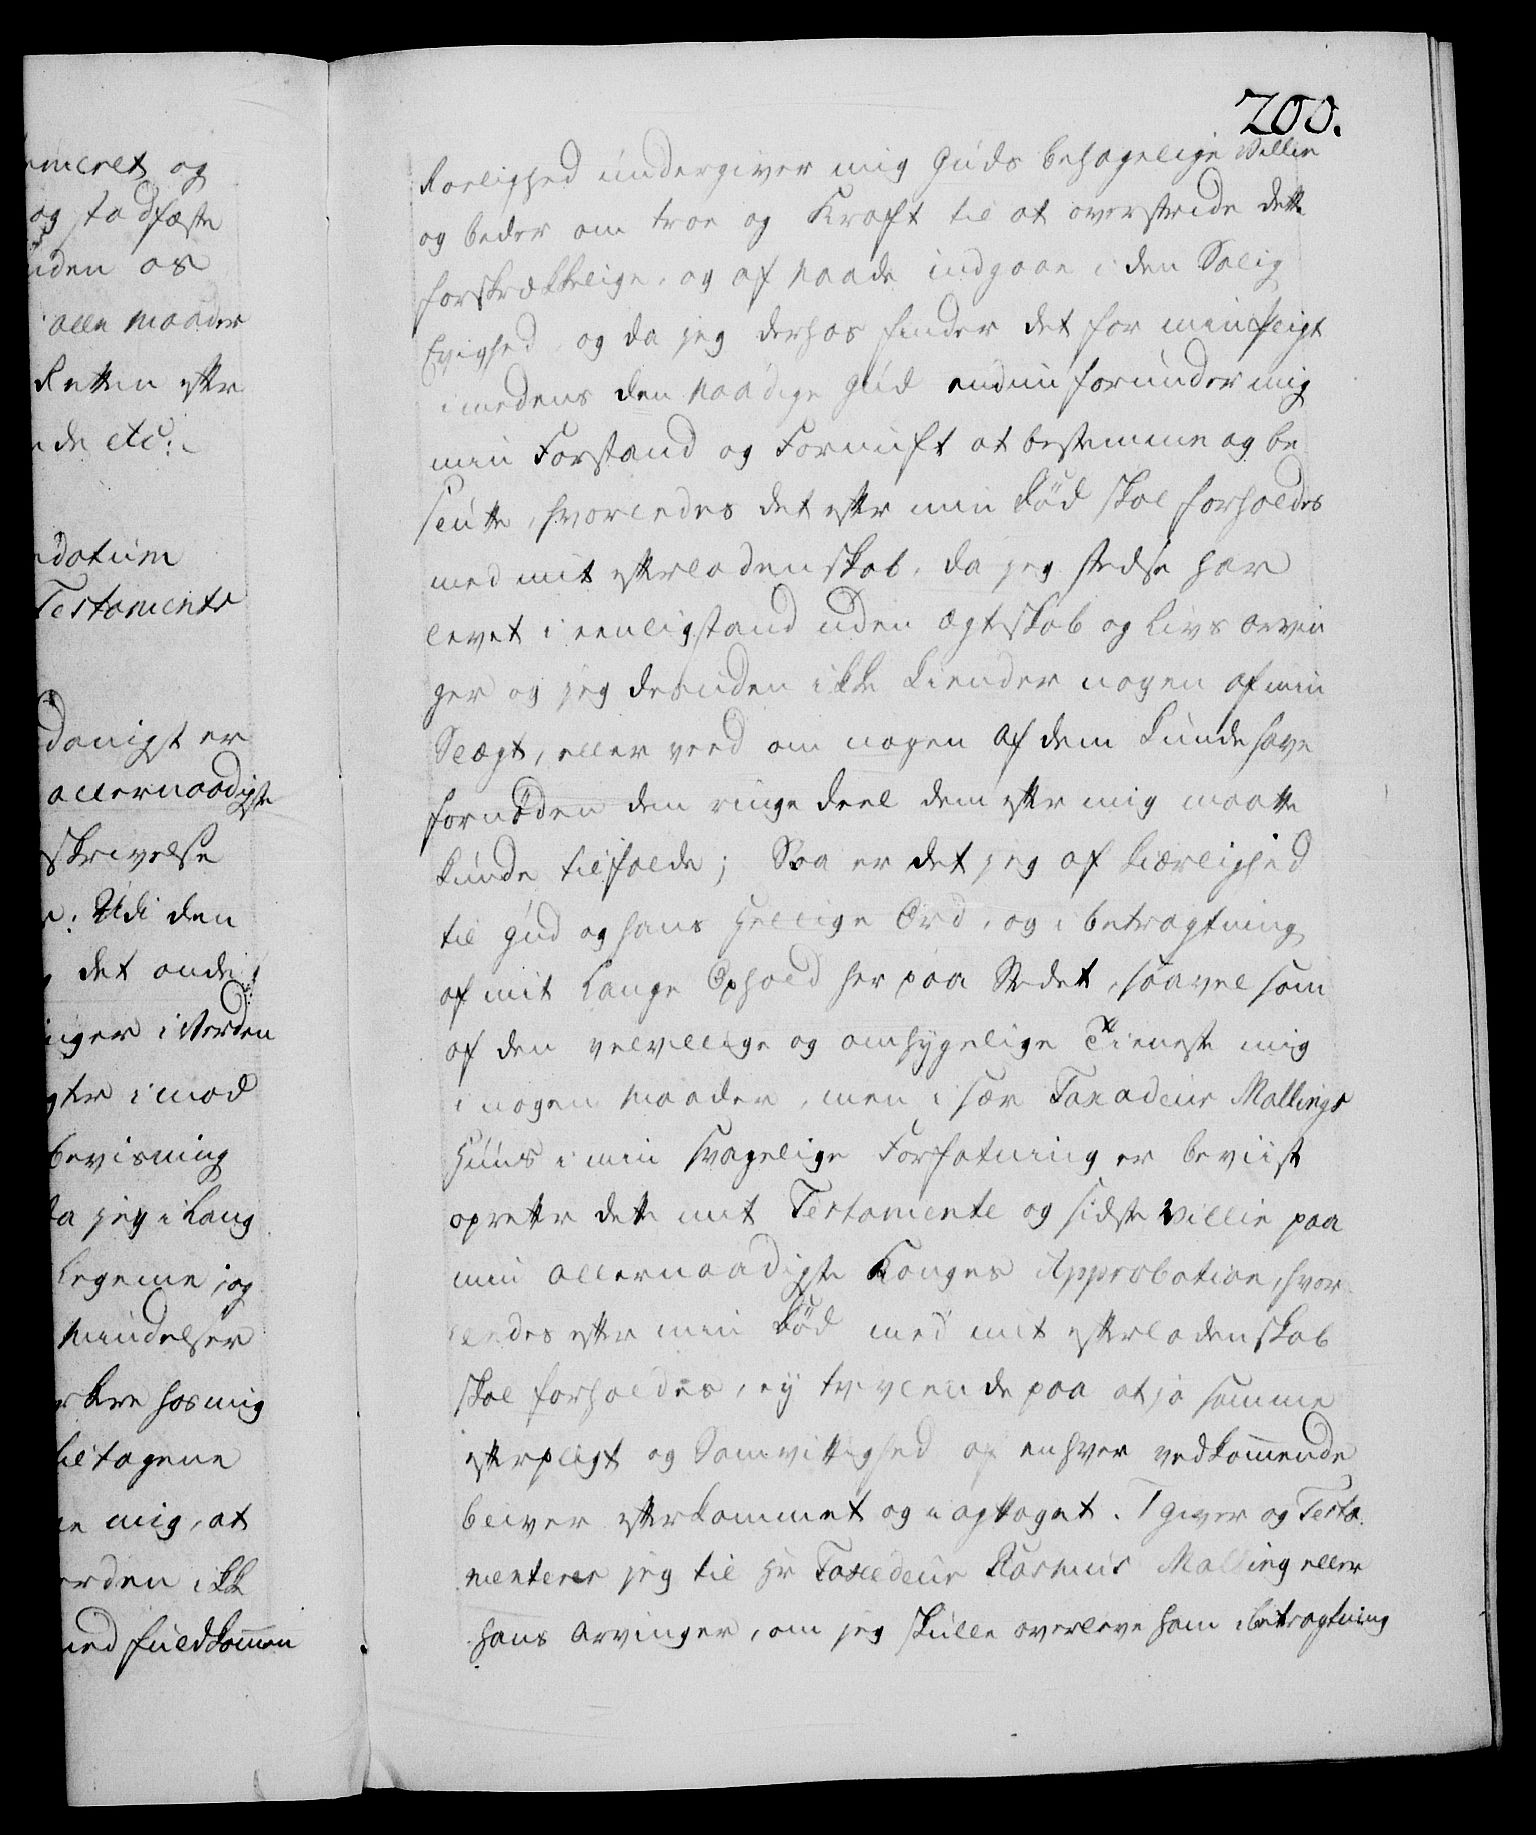 rmeret og
og stadfæste
uden os
alle Maader
Retten efter
nde etc:
datum
Testamente
danigst er
allernaadigste
skrivelse
Udi den
det onde
inger i Verden
gter imod
bevisning
da jeg i Lang
Legeme, og
Mindelser
hos mig
tiltagene
mig, at
erden ikke
med fuldkommen
200.
Roelighed undergiver mig Guds behagelige Villie
og beder om troe og Kraft til at overstride dette
forskrækkelige, og af Naade indgaae i den Salig
Evighed, og da jeg derhos finder det for min Pligt
imedens den Naadige Gud endnu forunder mig
min Forstand og Fornuft at bestemme og be
slutte, hvorledes det efter min Død skal forholdes
med mit efterladenskab, da jeg stedse har
levet i eenligstand uden Ægteskab og Livs arvin
ger og jeg desuden ikke kiender nogen af min
Slægt, eller veed om nogen af dem kunde have
fornøden den ringe deel dem efter mig maatte
kunde tilfalde; Saa er det jeg af kierlighed
til Gud og hans Hellige Ord, og i betragtning
af mit Lange Ophold her paa Stedet, saavel som
af den velvillige og omhyggelige Tieneste mig
i nogen Maader, men i sær Taxadeur Mallings
Huus i min svagelige Forfatning er beviist
opretter dette mit Testamente og sidste Villie paa
min allernaadigste Konges Approbation, hvor
ledes efter min Død med mit efterladenskab
skal forholdes, ey tvivlende paa at jo samme
efter pligt og Samvittighed af enhver vedkommende
bliver efterkommet og iagttaget. 1 giver og Testa
menterer jeg til Hr Taxadeur Rasmus Malling eller
hans Arvinger, om jeg skulle overleve ham i betragtning